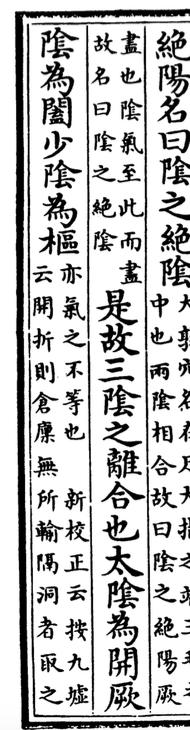 絶陽名曰陰之絶陰
中也兩陰相合故曰陰之絶陽厥
盡也陰氣至此而盡
故名曰陰之絶陰
是故三陰之離合也太陰為開厥
陰為闔少陰為樞
亦氣之不等也　新校正云按九墟
云開折則倉廩無所輸隔洞者取之